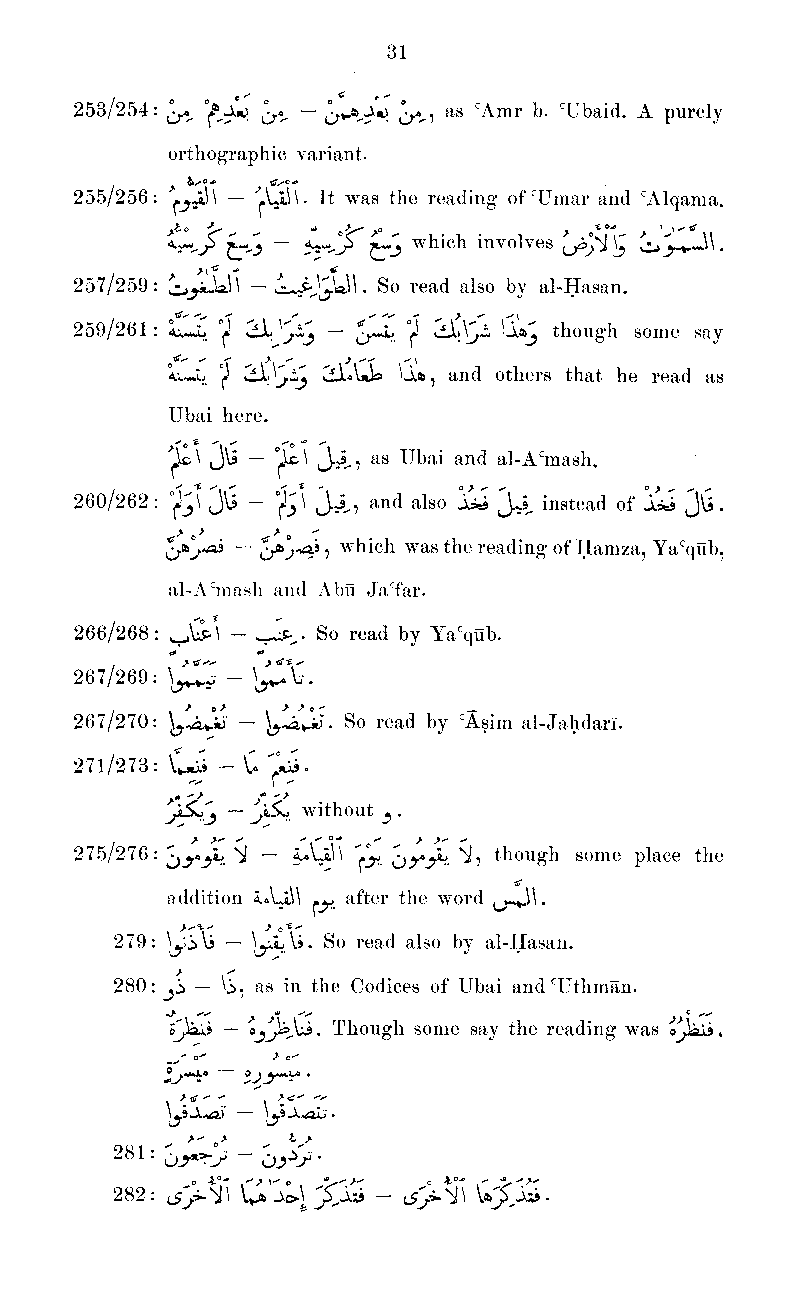 31
253/254: مِنْ بَعْدِهِمْ مِنْ — مِنْ بَعْدِهِمَّنْ, as ʿAmr b. ʿUbaid. A purely
orthographic variant.
255/256: ٱلْقَيُّومُ — ٱلْقَيَّامُ. It was the reading of ʿUmar and ʿAlqama.
وَسِعَ كُرْسِيُّهُ — وَسْعُ كُرْسِيِّهِ which involves ٱلسَّمٰوٰتُ وَٱلْأَرْضُ.
257/259: ٱلطَّٰغُوتُ — ٱلطَّوَاغِيتُ. So read also by al-Ḥasan.
259/261: وَشَرَابِكَ لَمْ يَتَسَنَّهْ — وَهٰذَا شَرَابُكَ لَمْ يَتَسَنَّ though some say
هٰذَا طَعَامُكَ وَشَرَابُكَ لَمْ يَتَسَنَّهْ, and others that he read as
Ubai here.
قَالَ أَعْلَمُ — قِيلَ ٱعْلَمْ, as Ubai and al-Aʿmash.
260/262: قَالَ أَوَلَمْ — قِيلَ أَوَلَمْ, and also قِيلَ فَخُذْ instead of قَالَ فَخُذْ.
فَصُرْهُنَّ — فَصِرْهُنَّ, which was the reading of Ḥamza, Yaʿqūb,
al-Aʿmash and Abū Jaʿfar.
266/268: أَعْنَابٍ — عِنَبٍ. So read by Yaʿqūb.
267/269: تَيَمَّمُوا — تَأَمَّمُوا.
267/270: تُغْمِضُوا — تَغْمُضُوا. So read by ʿĀṣim al-Jaḥdarī.
271/273: فَنِعِمَّا — فَنِعْمَ مَا.
وَيُكَفِّرُ — يُكَفِّرُ without و.
275/276: لَا يَقُومُونَ — لَا يَقُومُونَ يَوْمَ ٱلْقِيَامَةِ, though some place the
addition يوم القيامة after the word المَسّ.
279: فَأْذَنُوا — فَأَيْقِنُوا. So read also by al-Ḥasan.
280: ذُو — ذَا, as in the Codices of Ubai and ʿUthmān.
فَنَظِرَةٌ — فَنَاظِرُوهُ. Though some say the reading was فَنَظْرُهُ.
مَيْسَرَةٍ — مَيْسُورِهِ.
تَصَدَّقُوا — تَتَصَدَّقُوا.
281: تُرْجَعُونَ — تُرَدُّونَ.
282: فَتُذَكِّرَ إِحْدٰهُمَا ٱلْأُخْرَى — فَتُذَكِّرَهَا ٱلْأُخْرَى.